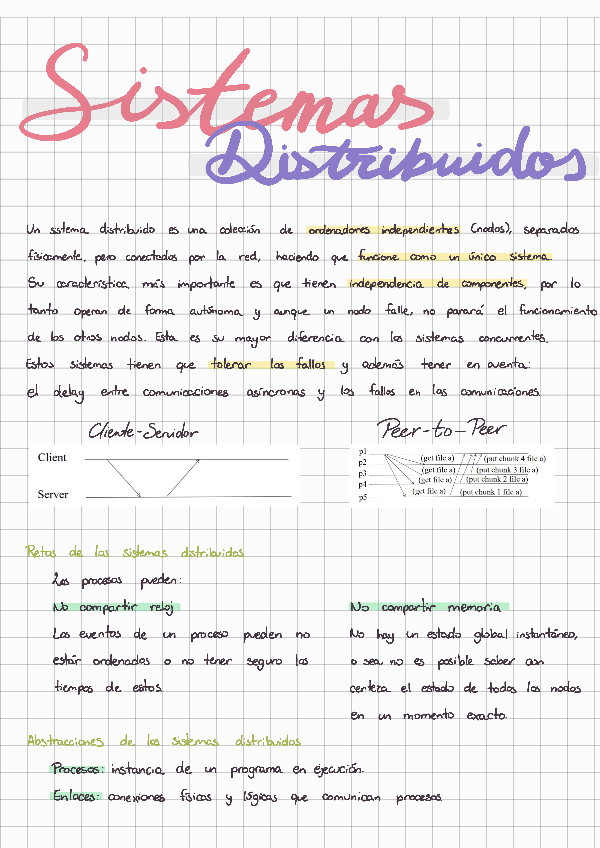 Sistemas
Distribuidos
Un sistema distribuido es una colección de ordenadores independientes (nodos), separados
físicamente, pero conectados por la red, haciendo que funcione como un único sistema.
Su característica más importante es que tienen independencia de componentes, por lo
tanto operan de forma autónoma y aunque un nodo falle, no parará el funcionamiento
de los otros nodos. Esta es su mayor diferencia con los sistemas concurrentes.
Estos sistemas tienen que tolerar los fallos y además tener en cuenta:
el delay entre comunicaciones asíncronas y los fallos en las comunicaciones.
Cliente-Servidor
Client
Server
Peer-to-Peer
p1
p2
p3
p4
p5
(get file a)
(get file a)
(get file a)
(get file a)
(put chunk 4 file a)
(put chunk 3 file a)
(put chunk 2 file a)
(put chunk 1 file a)
Retos de los sistemas distribuidos
Los procesos pueden:
No compartir reloj
Los eventos de un proceso pueden no
estár ordenados o no tener seguro los
tiempos de estos.
No compartir memoria
No hay un estado global instantáneo,
o sea, no es posible saber con
certeza el estado de todos los nodos
en un momento exacto.
Abstracciones de los sistemas distribuidos
Procesos: instancia de un programa en ejecución.
Enlaces: conexiones físicas y lógicas que comunican procesos